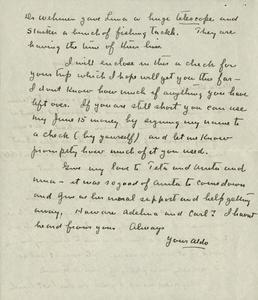 Dr Wehmer gave Luna a huge telescope and
Starker a bunch of fishing tackle. They are
having the time of their lives
I will enclose in this a check for
your trip which I hope will get you this far -
I don't know how much if anything you have
left over. If you are still short you can use
my June 15 money by signing my name to
a check (by yourself) and let me know
promptly how much of it you need.
Give my love to Tete and Anita and
- it was so good of Anita to come down
and give us her moral support and help getting
away. How are Adelina and Carl? I havent
heard from you. Always
Your Aldo